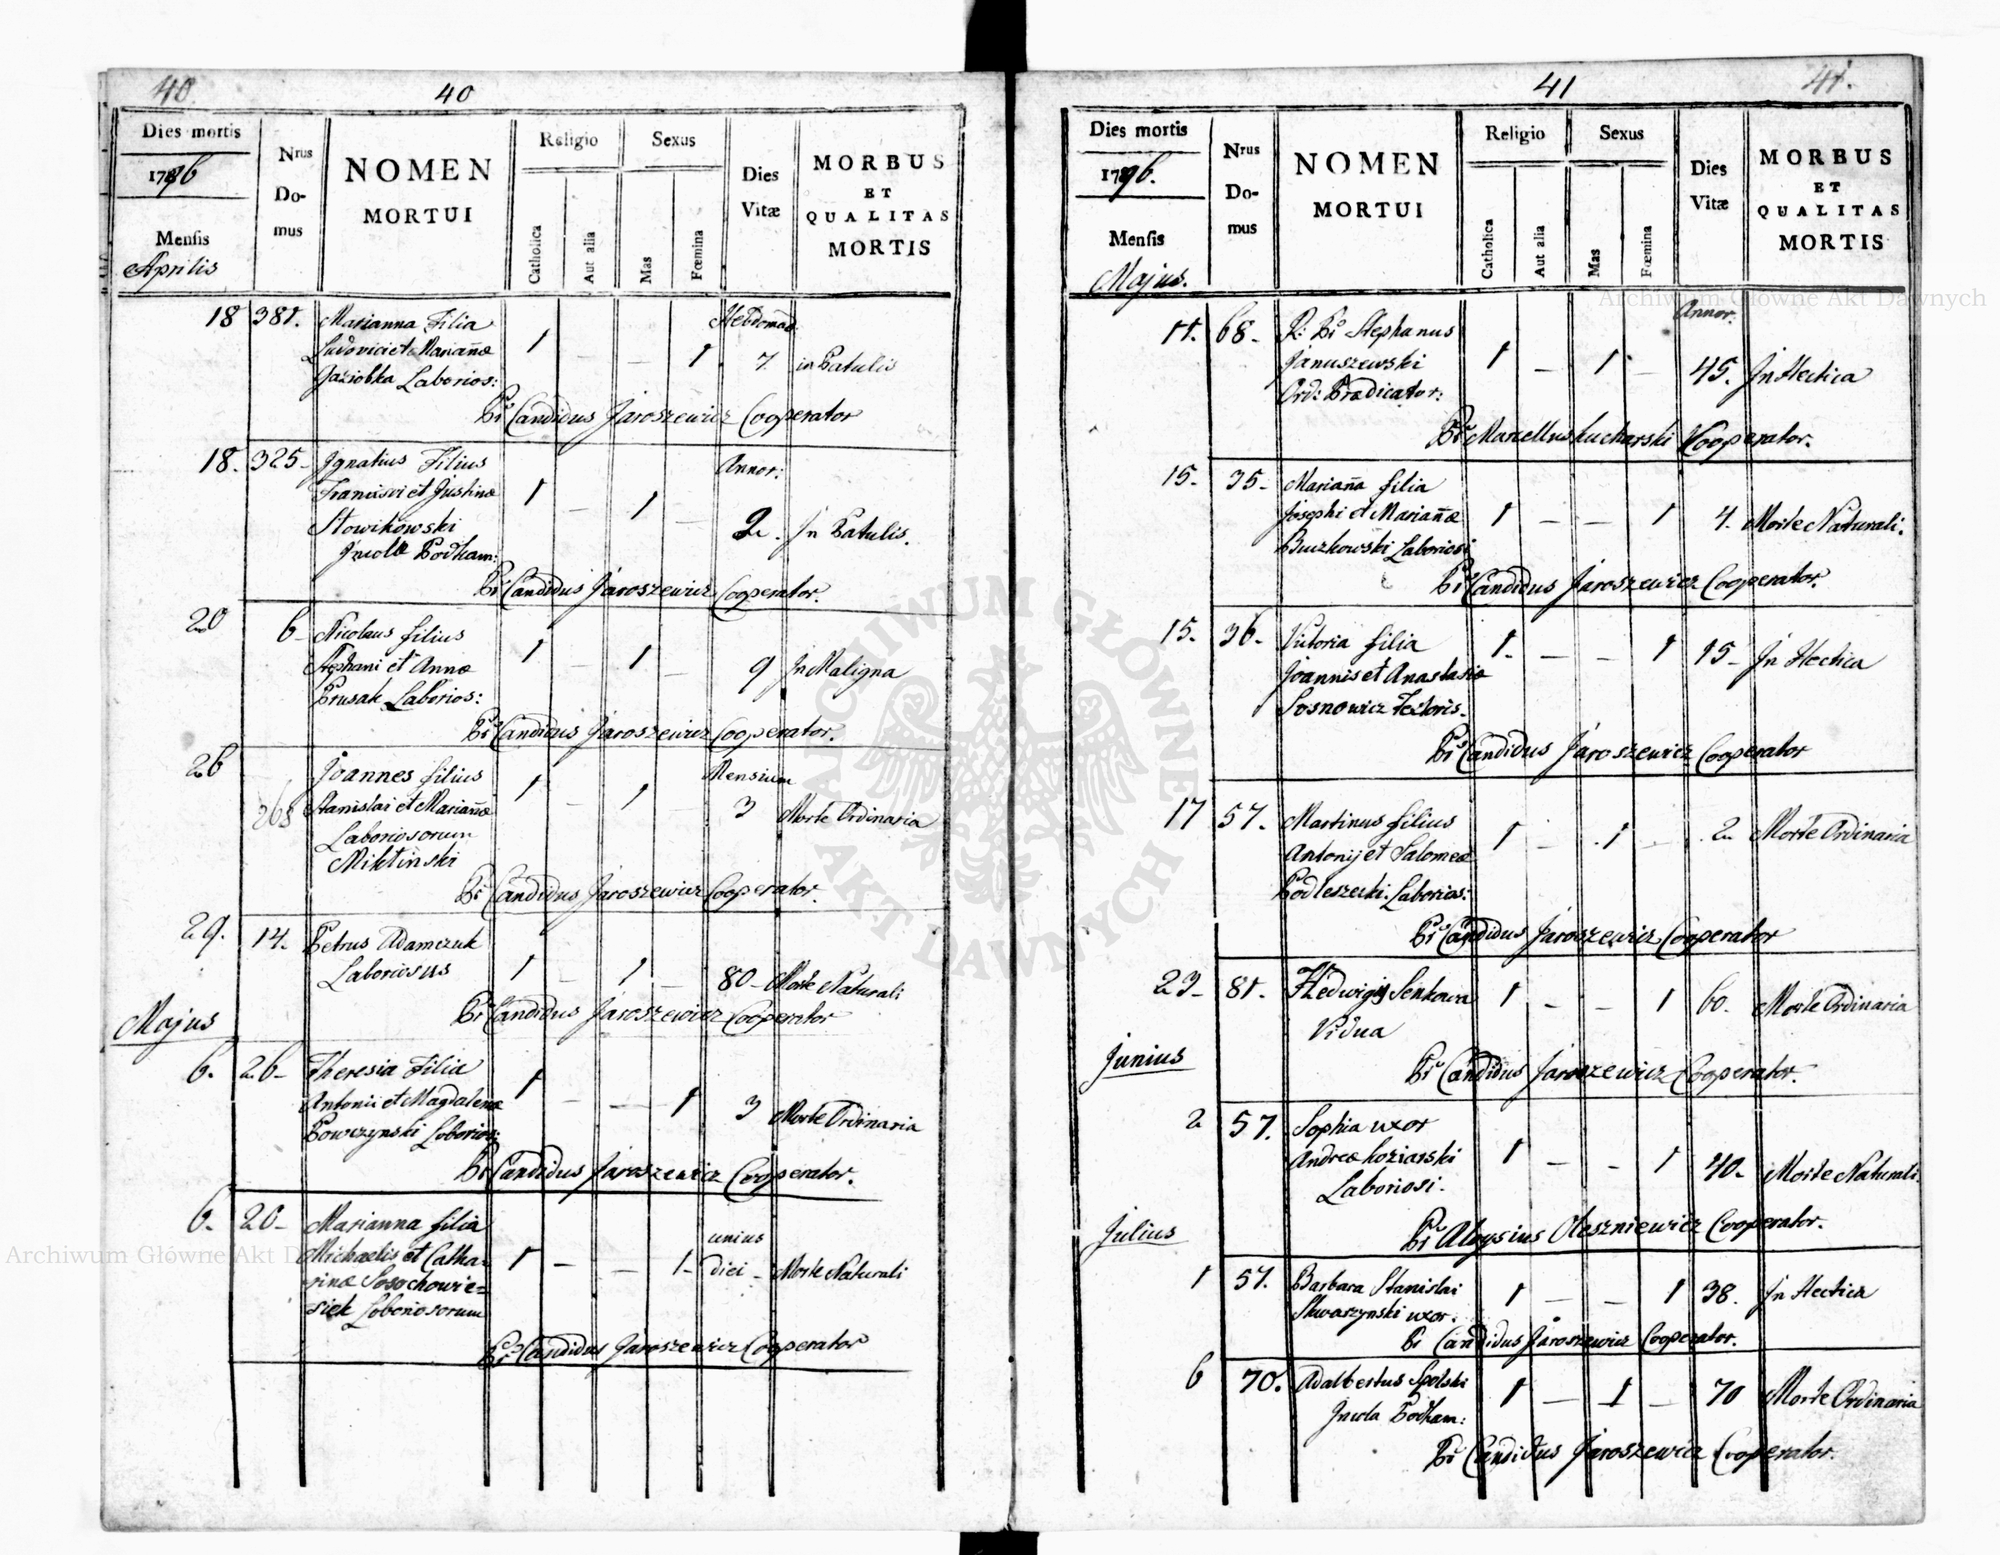 40
40
Dies mortis
1796
Mensis
Aprilis
Nrus
Do-
mus
NOMEN
MORTUI
Religio
Catholica
Aut alia
Sexus
Mas
Fœmina
Dies
Vitæ
MORBUS
ET
QUALITAS
MORTIS
18 381. Marianna Filia Hebdomad.
Ludovici et Mariañæ 1 – – 1. 7. in Patulis
Jaziobka Laborios:
Pr Candidus Jaroszewicz Cooperator
18. 325 – Ignatius Filius Annor:
Francisci et Justinæ 1 – 1 –
Stowikowski 2. In Patulis.
Incolæ Podham:
Pr Candidus Jaroszewicz Cooperator.
20 6 – Nicolaus filius
Stephani et Annæ 1 – 1 – 9 In Maligna
Prusak Laborios:
Pr Candidus Jaroszewicz Cooperator.
26 Joannes filius Mensium
268 Stanislai et Mariañæ 1 – 1 – 3 Morte Ordinaria
Laboriosorum
Miktinski
Pr Candidus Jaroszewicz Cooperator.
29. 14. Petrus Adamczuk
Laboriosus 1 – 1 – 80 – Morte Naturali
Pr Candidus Jaroszewicz Cooperator
Majus
6. 26 – Theresia Filia
Antonii et Magdalenæ 1 – – 1 3 Morte Ordinaria
Powczynski Laborios:
Pr Candidus Jaroszewicz Cooperator.
6. 20 – Marianna filia unius
Michaelis et Catha- 1 – – 1 – diei – Morte Naturali
rinæ Sosochowie=
siek Laboriosorum
Pr Candidus Jaroszewicz Cooperator
41
41.
Dies mortis
1796.
Mensis
Majus.
Nrus
Do-
mus
NOMEN
MORTUI
Religio
Catholica
Aut alia
Sexus
Mas
Fœmina
Dies
Vitæ
MORBUS
ET
QUALITAS
MORTIS
11. 68 – R: Pr Stephanus Annor.
Januszewski 1 – 1 – 45. In Hectica
Ord: Prædicator:
Pr Marcellus Kucharski Cooperator.
15 – 35 – Mariaña filia
Josephi et Mariañæ 1 – – 1 4. Morte Naturali.
Buczkowski Laboriosi
Pr Candidus Jaroszewicz Cooperator.
15. 36 – Victoria filia
Joannis et Anastasiæ 1. – – 1 15 – In Hectica
Sosnowicz Textoris.
Pr Candidus Jaroszewicz Cooperator
17 57. Martinus filius
Antonij et Salomeæ 1 – 1 – 2 Morte Ordinaria
Podleszecki. Laborios:
Pr Candidus Jaroszewicz Cooperator
23 – 81. Hedwigis Senkowa 1 – – 1 60. Morte Ordinaria
Vidua
Pr Candidus Jaroszewicz Cooperator.
Junius
2 57. Sophia uxor
Andreæ Koziarski 1 – – 1 40. Morte Naturali.
Laboriosi.
Pr Aloysius Oleszniewicz Cooperator.
Julius
1 57. Barbara Stanislai 1 – – 1 38. In Hectica
Skwarzynski uxor.
Pr Candidus Jaroszewicz Cooperator.
6 70. Adalbertus Spolski 1 – 1 – 70 Morte Ordinaria
Incola Podham:
Pr Candidus Jaroszewicz Cooperator.
Archiwum Główne Akt Dawnych
Archiwum Główne Akt D
ARCHIWUM GŁÓWNE
AKT DAWNYCH